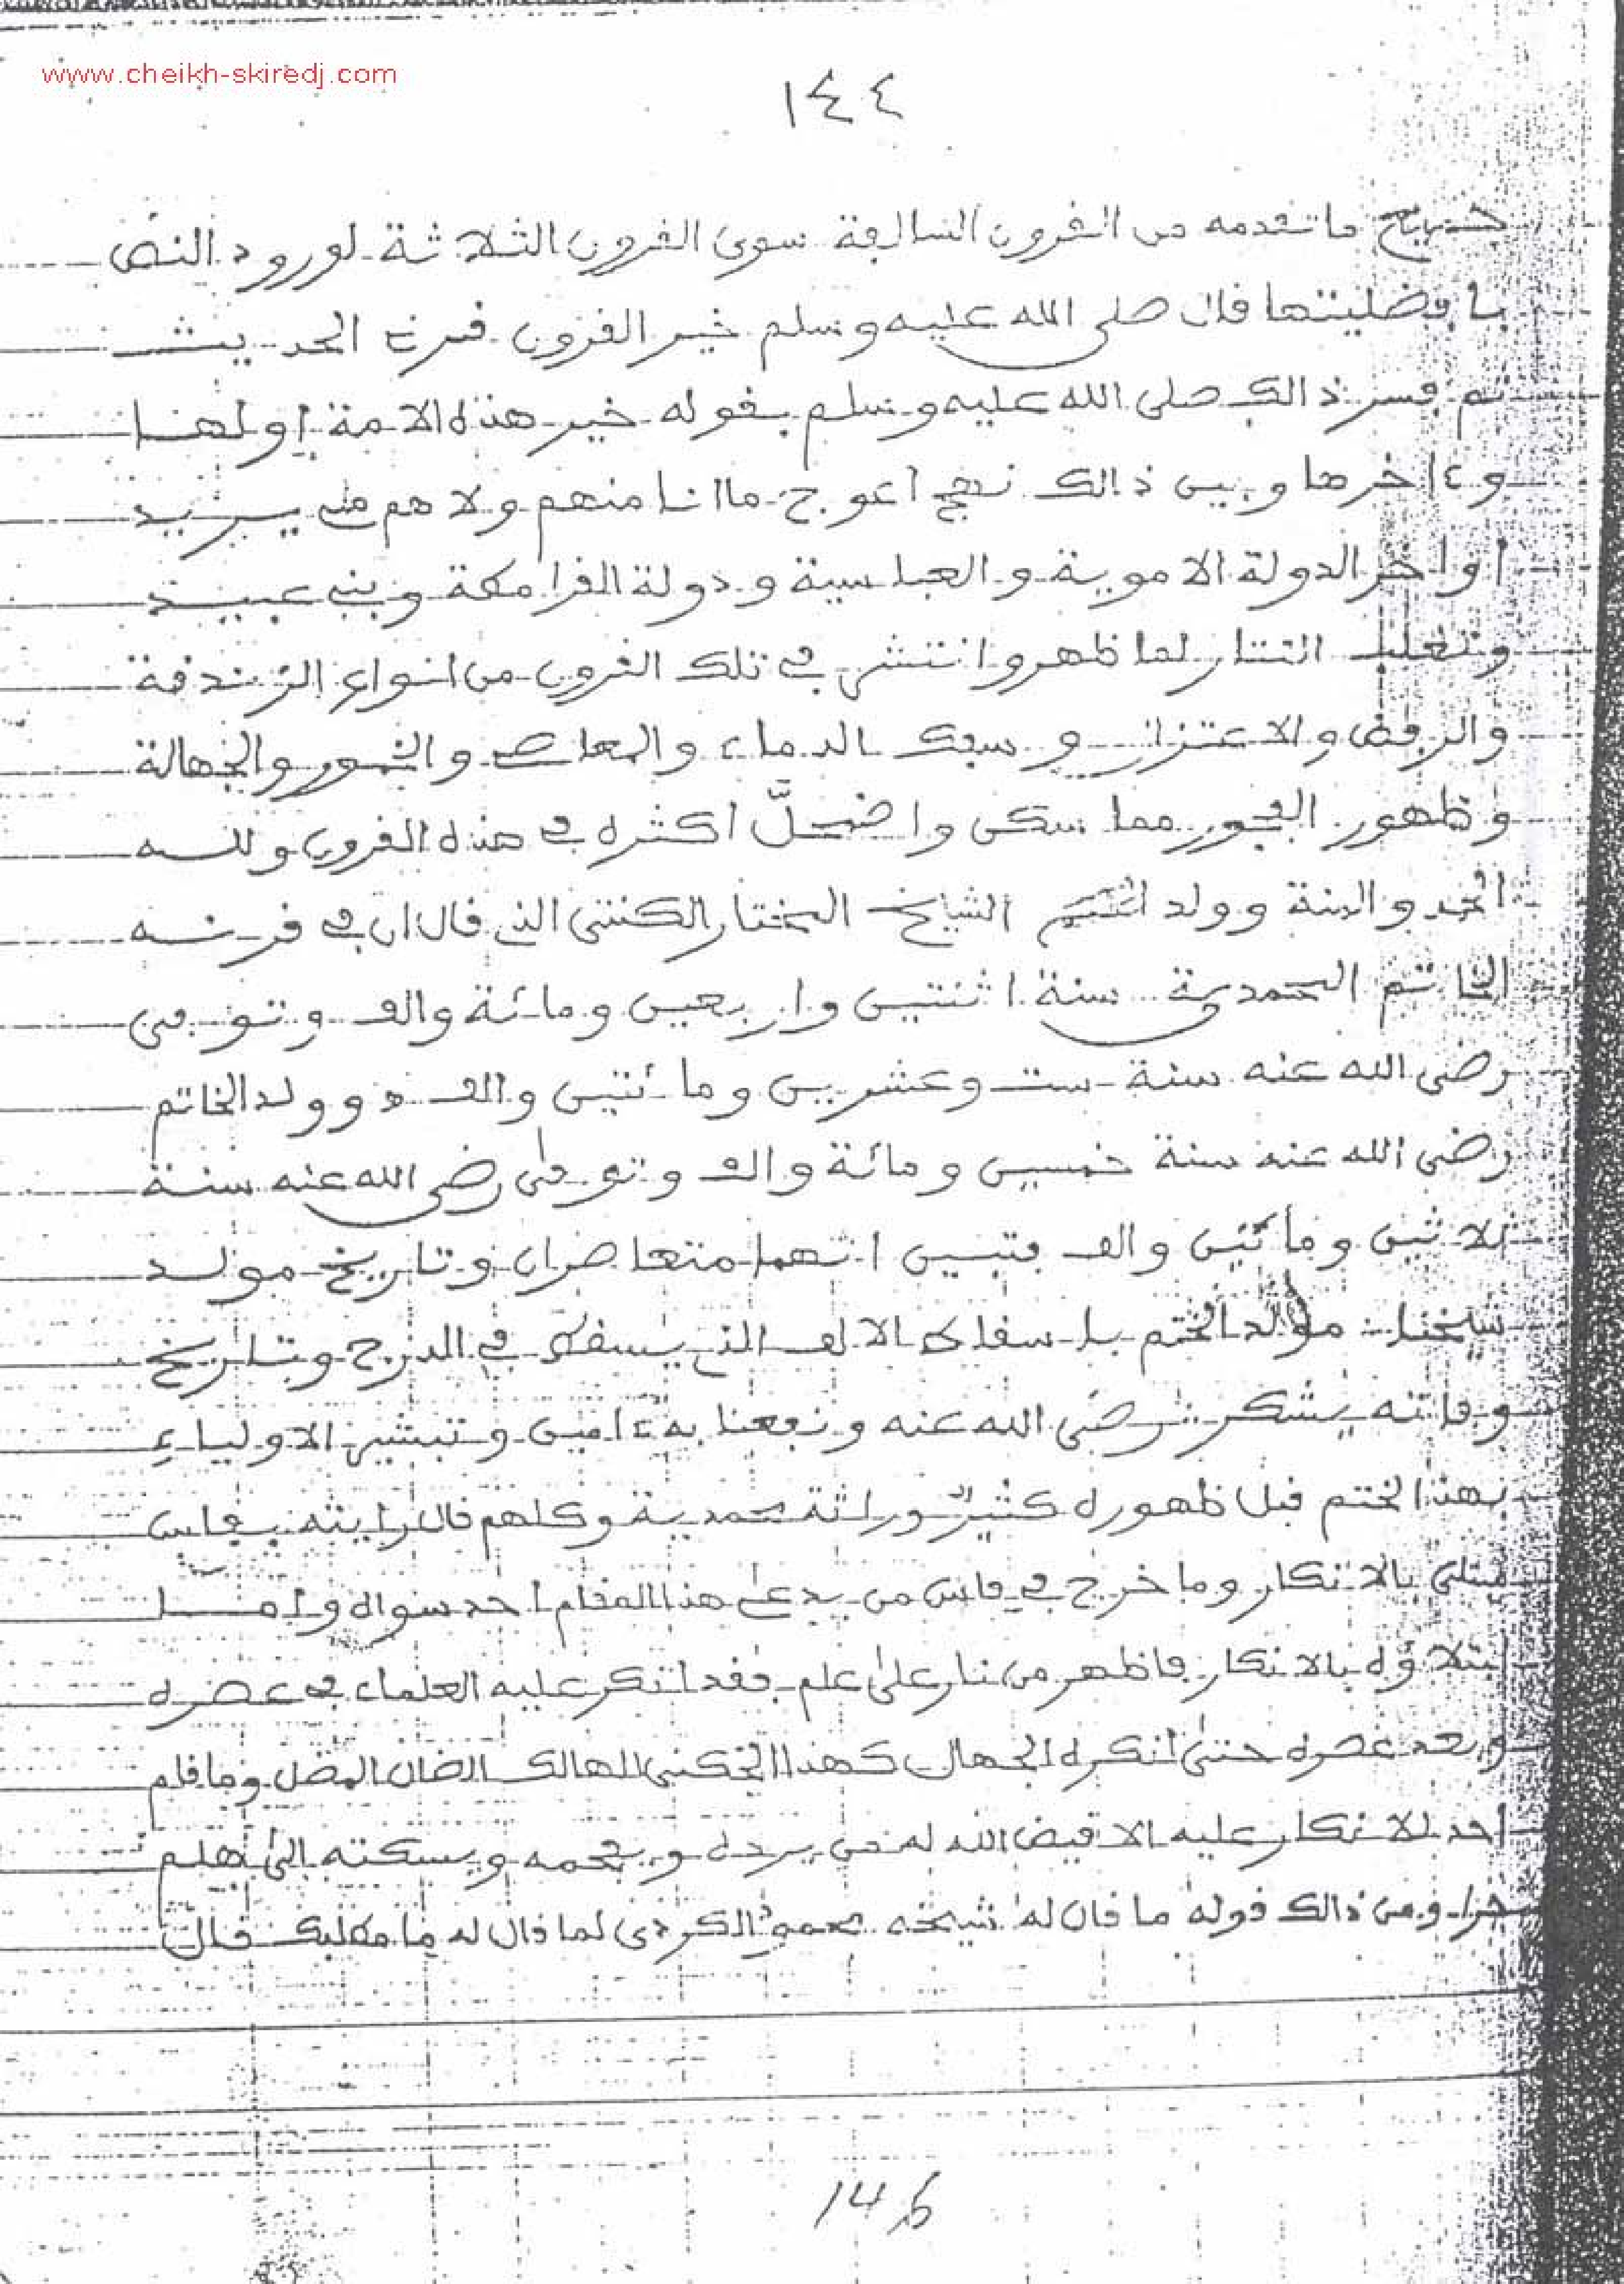 www.cheikh-skiredj.com
١٤٤
جميع ما تقدمه من القرون السالفة سوى القرون الثلاثة لورود النص
بافضليتها فال صلى الله عليه وسلم خير القرون قرني الحديث
ثم فسر ذالك صلى الله عليه وسلم بقوله خير هذه الامة اولها
وءاخرها وبين ذالك نهج اعوج ما انا منهم ولا هم مني يريد
اواخر الدولة الاموية والعباسية ودولة القرامكة وبني عبيد
وتغلب التتار لما ظهر وانتشر في تلك القرون من انواع الزندقة
والرفض والاعتزال وسبك الدماء والمعاصي والخمور والجهالة
وظهور الفجور مما سكن واضمحلّ اكثره في هذه القرون ولله
الحمد والمنة وولد الشيخ المختار الكنتي الذي قال ان في قرنه
الخاتم المحمدي سنة اثنتين واربعين ومائة والف وتوفي
رضي الله عنه سنة ست وعشرين ومائتين والف وولد الخاتم
رضي الله عنه سنة خمسين ومائة والف وتوفي رضي الله عنه سنة
ثلاثين ومائتين والف فتبين انهما متعاصران وتاريخ مولد
شيخنا مولد الختم باسفاط الالف الذي يسفط في الدرج وتاريخ
وفاته يشكر رضي الله عنه ونفعنا به ءامين وتبشير الاولياء
بهذا الختم قبل ظهوره كثير وراثة محمدية وكلهم قال رايته بفاس
مبتلى بالانكار وما خرج في فاس من يدعي هذا المقام احد سواه واما
ابتلاؤه بالانكار فاظهر من نار على علم فقد انكر عليه العلماء في عصره
وبعد عصره حتى انكره الجهال كهذا الهالك الضال المضل وما قام
احد للانكار عليه الا قيض الله له من يرده ويفحمه ويسكته الى هلم
جرا ومن ذالك قوله ما قال له شيخه محمود الكردي لما قال له ما مطلبك قال
146